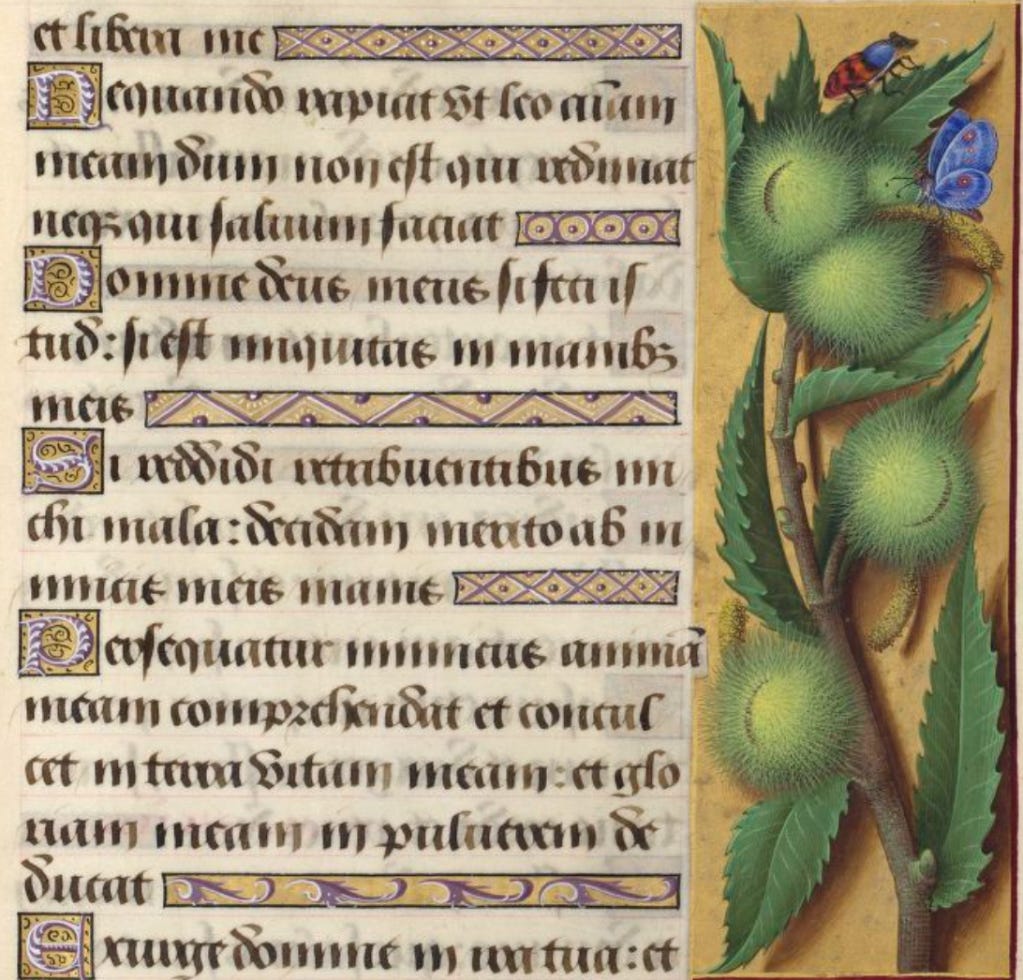 et libera me
Nequando rapiat ut leo aīam
meam dum non est qui redimat
neqꝫ qui saluum faciat
Domine deus meus si feci is
tud: si est iniquitas in manibꝫ
meis
Si reddidi retribuentibus mi
chi mala: decidam merito ab in
imicis meis inanis
Persequatur inimicus animā
meam comprehendat et concul
cet in terra vitam meam: et glo
riam meam in puluerem de
ducat
Exurge domine in ira tua: et